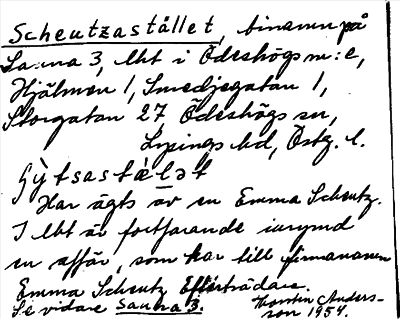 Scheutzastället, binamn på
Sauna 3, lht i Ödeshögs m:e,
Hjälmen 1, Smedjegatan 1,
Storgatan 27 Ödeshögs sn,
Lysings hd, Östg. l.
Har ägts av en Emma Scheutz.
I lht är fortfarande inrymd
en affär, som har till firmanamn
Emma Scheutz Efterträdare.
Se vidare Sauna 3.
Thorstin Anders-
son 1954.